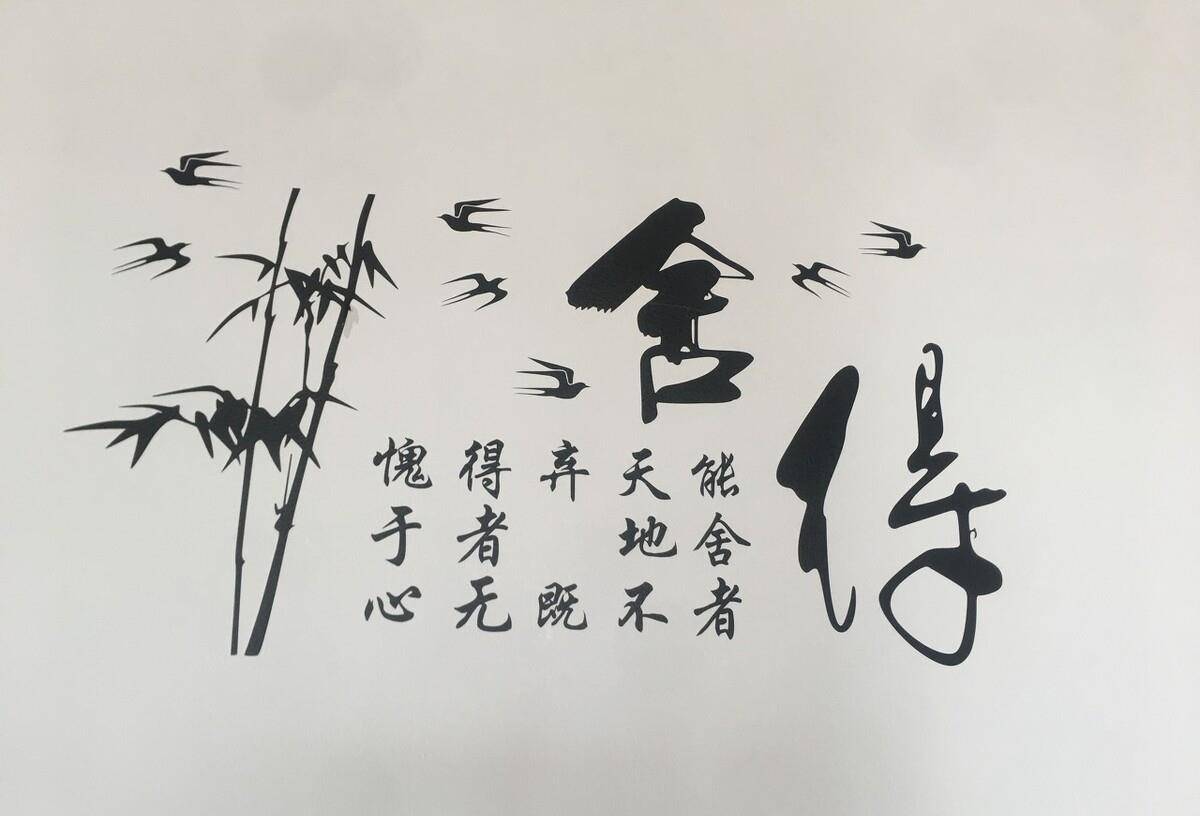 舍得
能舍者
天地不
弃 既
得者无
愧于心